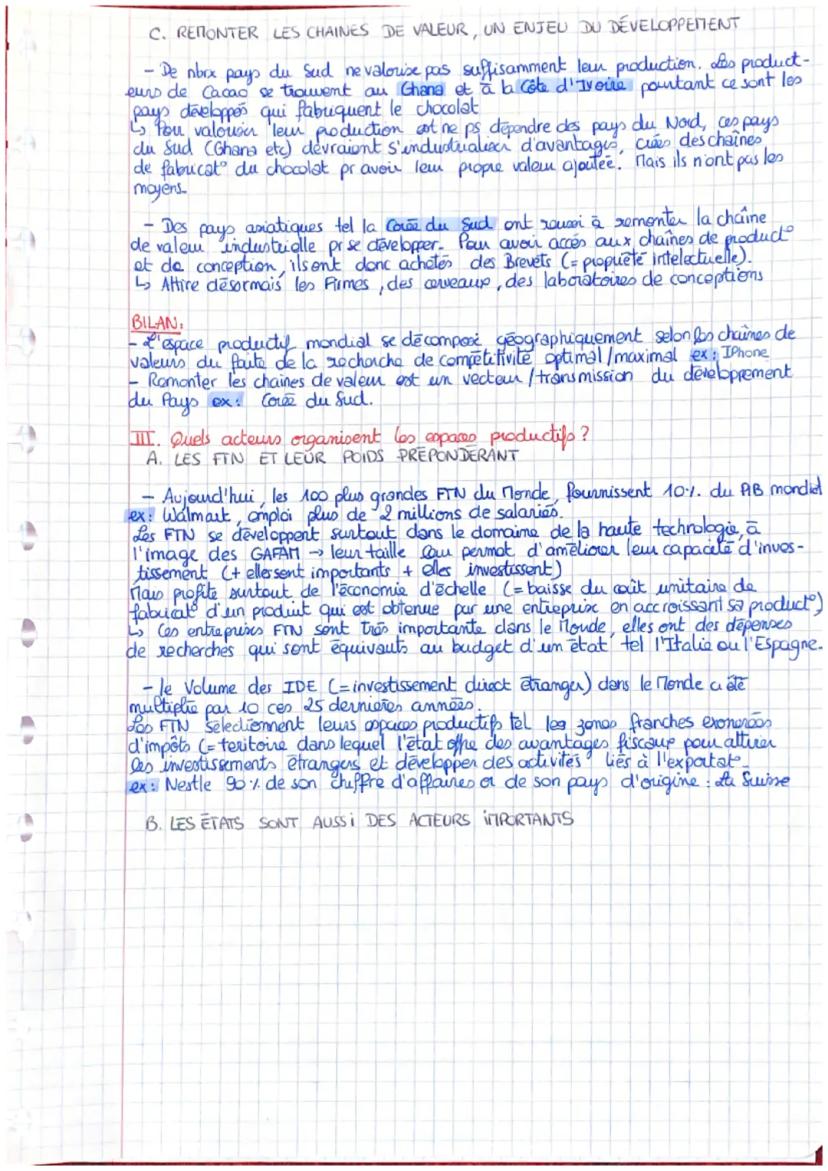 C. REMONTER LES CHAINES DE VALEUR, UN ENJEU DU DÉVELOPPEMENT
- De nbrx pays du Sud ne valorise pas suffisamment leur production. Les product-
eurs de Cacao se trouvent au Ghana et à la Côte d'Ivoire pourtant ce sont les
pays développés qui fabriquent le chocolat
↳ Pou valorisir leur production est ne ps dépendre des pays du Nord, ces pays
du Sud (Ghana etc) devraient s'industrialiser d'avantages, crées des chaînes
de fabricat° du chocolat pr avoir leur propre valeur ajoutée. Mais ils n'ont pas les
moyens.
- Des pays asiatiques tel la Corée du Sud ont reussi à remonter la chaîne
de valeur industrielle pr se développer. Pour avoir accés aux chaînes de product°
et de conception, ils ont donc achetés des Brevets (= propriété intelectuelle).
↳ Attire désormais les Firmes, des cerveaux, des laboratoires de conceptions
BILAN:
- L'espace productif mondial se décompose géographiquement selon les chaines de
valeurs du faite de la recherche de compétitivité optimal/maximal ex: IPhone
- Remonter les chaines de valeur est un vecteur/transmission du développement
du Pays ex: Corée du Sud.
III. Quels acteurs organisent les espaces productifs ?
A. LES FTN ET LEUR POIDS PRÉPONDÉRANT
- Aujourd'hui, les 100 plus grandes FTN du Monde, fournissent 10% du PIB mondial
ex: Walmart, emploi plus de 2 millions de salariés.
Les FTN se développent surtout dans le domaine de la haute technologie, à
l'image des GAFAM → leur taille leu permet d'améliorer leur capacité d'inves-
tissement (+ elles sent importants + elles investissent)
Mais profite surtout de l'économie d'échelle (= baisse du coût unitaire de
fabricat° d'un produit qui est obtenue par une entreprise en accroissant sa product°)
↳ Ces entreprises FTN sont trés importante dans le Monde, elles ont des dépenses
de recherches qui sont équivauts au budget d'un état tel l'Italie ou l'Espagne.
- le Volume des IDE (= investissement direct étranger) dans le Monde a été
multiplié par 10 ces 25 dernières années.
Les FTN sélectionnent leurs espaces productifs tel les zones franches exonérées
d'impôts (= teritoire dans lequel l'état offre des avantages fiscaux pour attirer
les investissements étrangers et développer des activités liés à l'exportat°.
ex: Nestle 90% de son chiffre d'affaires or de son pays d'origine : La Suisse
B. LES ÉTATS SONT AUSSI DES ACTEURS IMPORTANTS